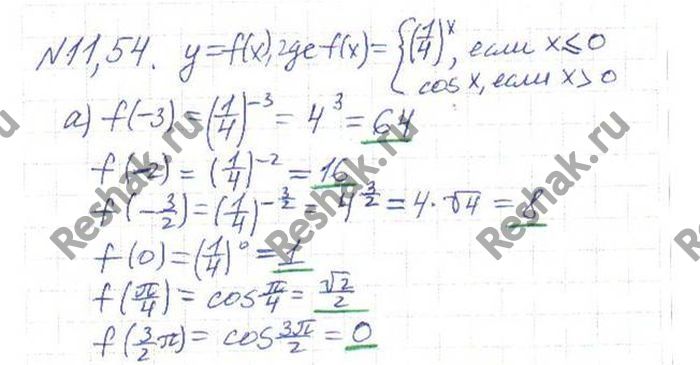 N11,54. y=f(x), где f(x)= { (1/4)^x, если x≤0
cos x, если x>0
а) f(-3) = (1/4)^-3 = 4^3 = 64
f(-2) = (1/4)^-2 = 16
f(-3/2) = (1/4)^-3/2 = 4^3/2 = 4·√4 = 8
f(0) = (1/4)^0 = 1
f(π/4) = cos π/4 = √2/2
f(3/2 π) = cos 3π/2 = 0
Reshak.ru
Reshak.ru
Reshak.ru
Reshak.ru